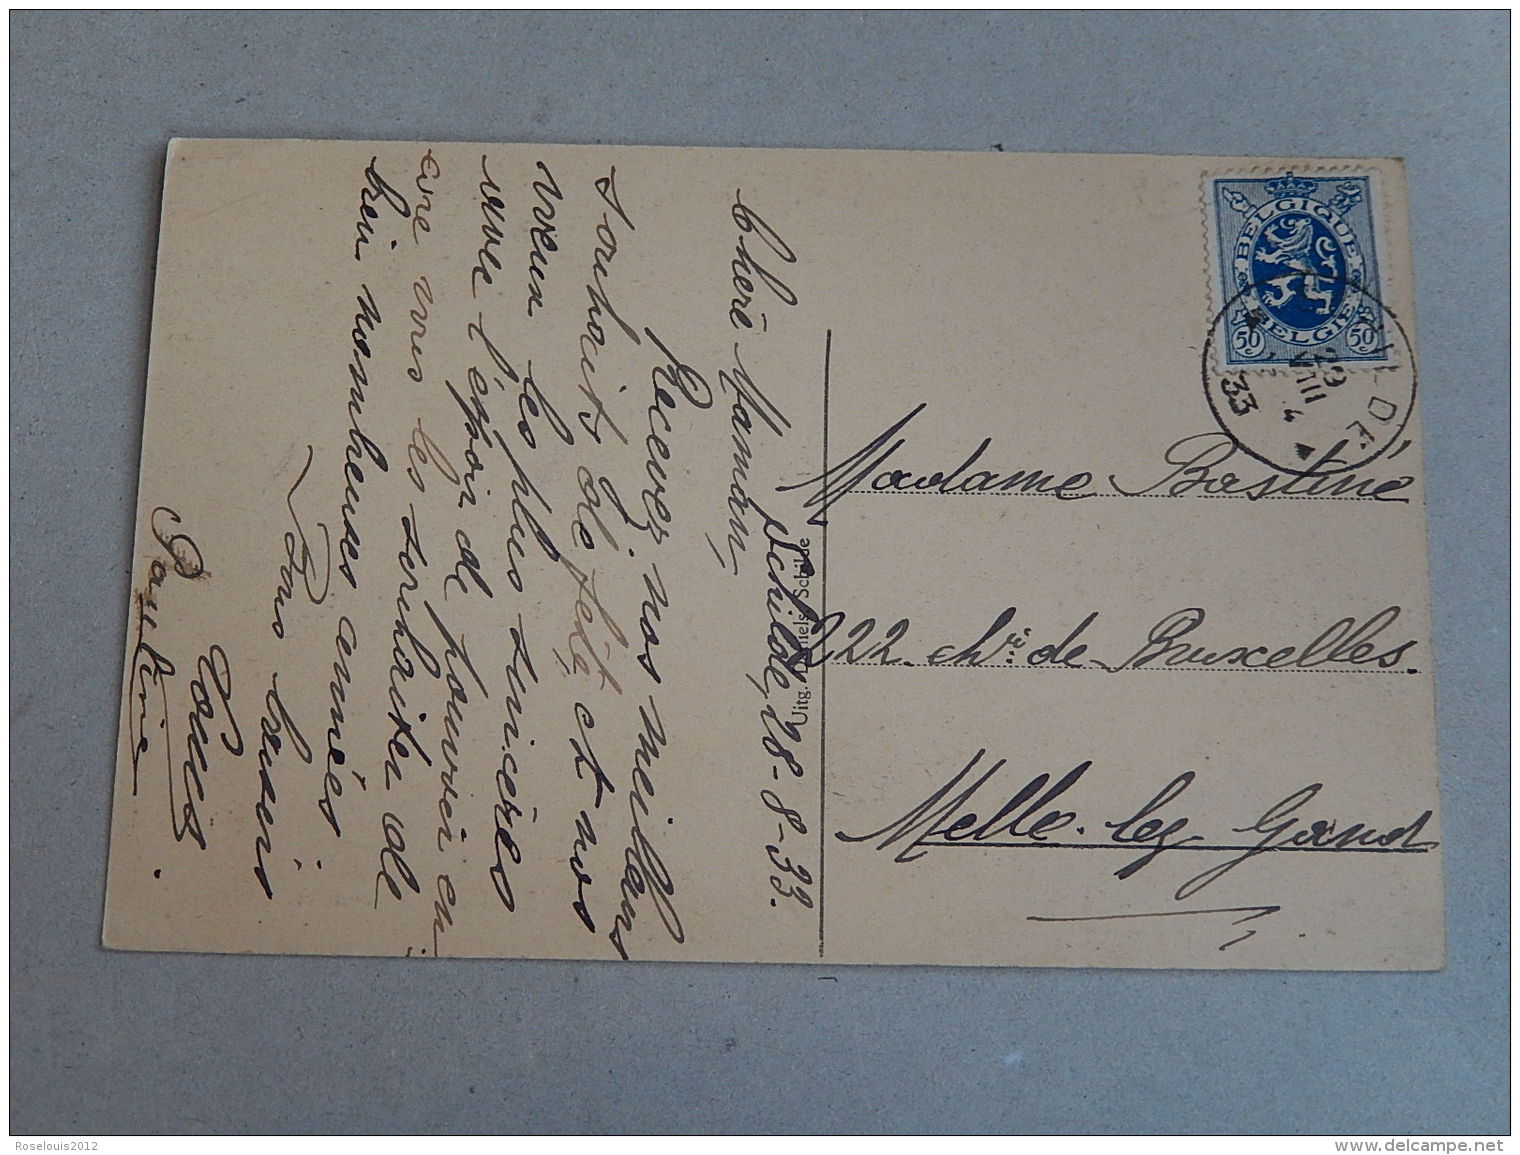 BELGIQUE
BELGIË
50c
50c
SCHILDE
29
VIII
33
Schilde, 28-8-33.
Chère Maman,
Recevez nos meilleurs
souhaits de fête et nos
vœux les plus sincères
avec l'espoir de pouvoir en-
core vous les souhaiter de
bien nombreuses années
Bons baisers
Louis
Pauline
Uitg. Daniels, Schilde
Madame Bastiné
222 chée de Bruxelles.
Melle-lez-Gand
Roselouis2012
www.delcampe.net